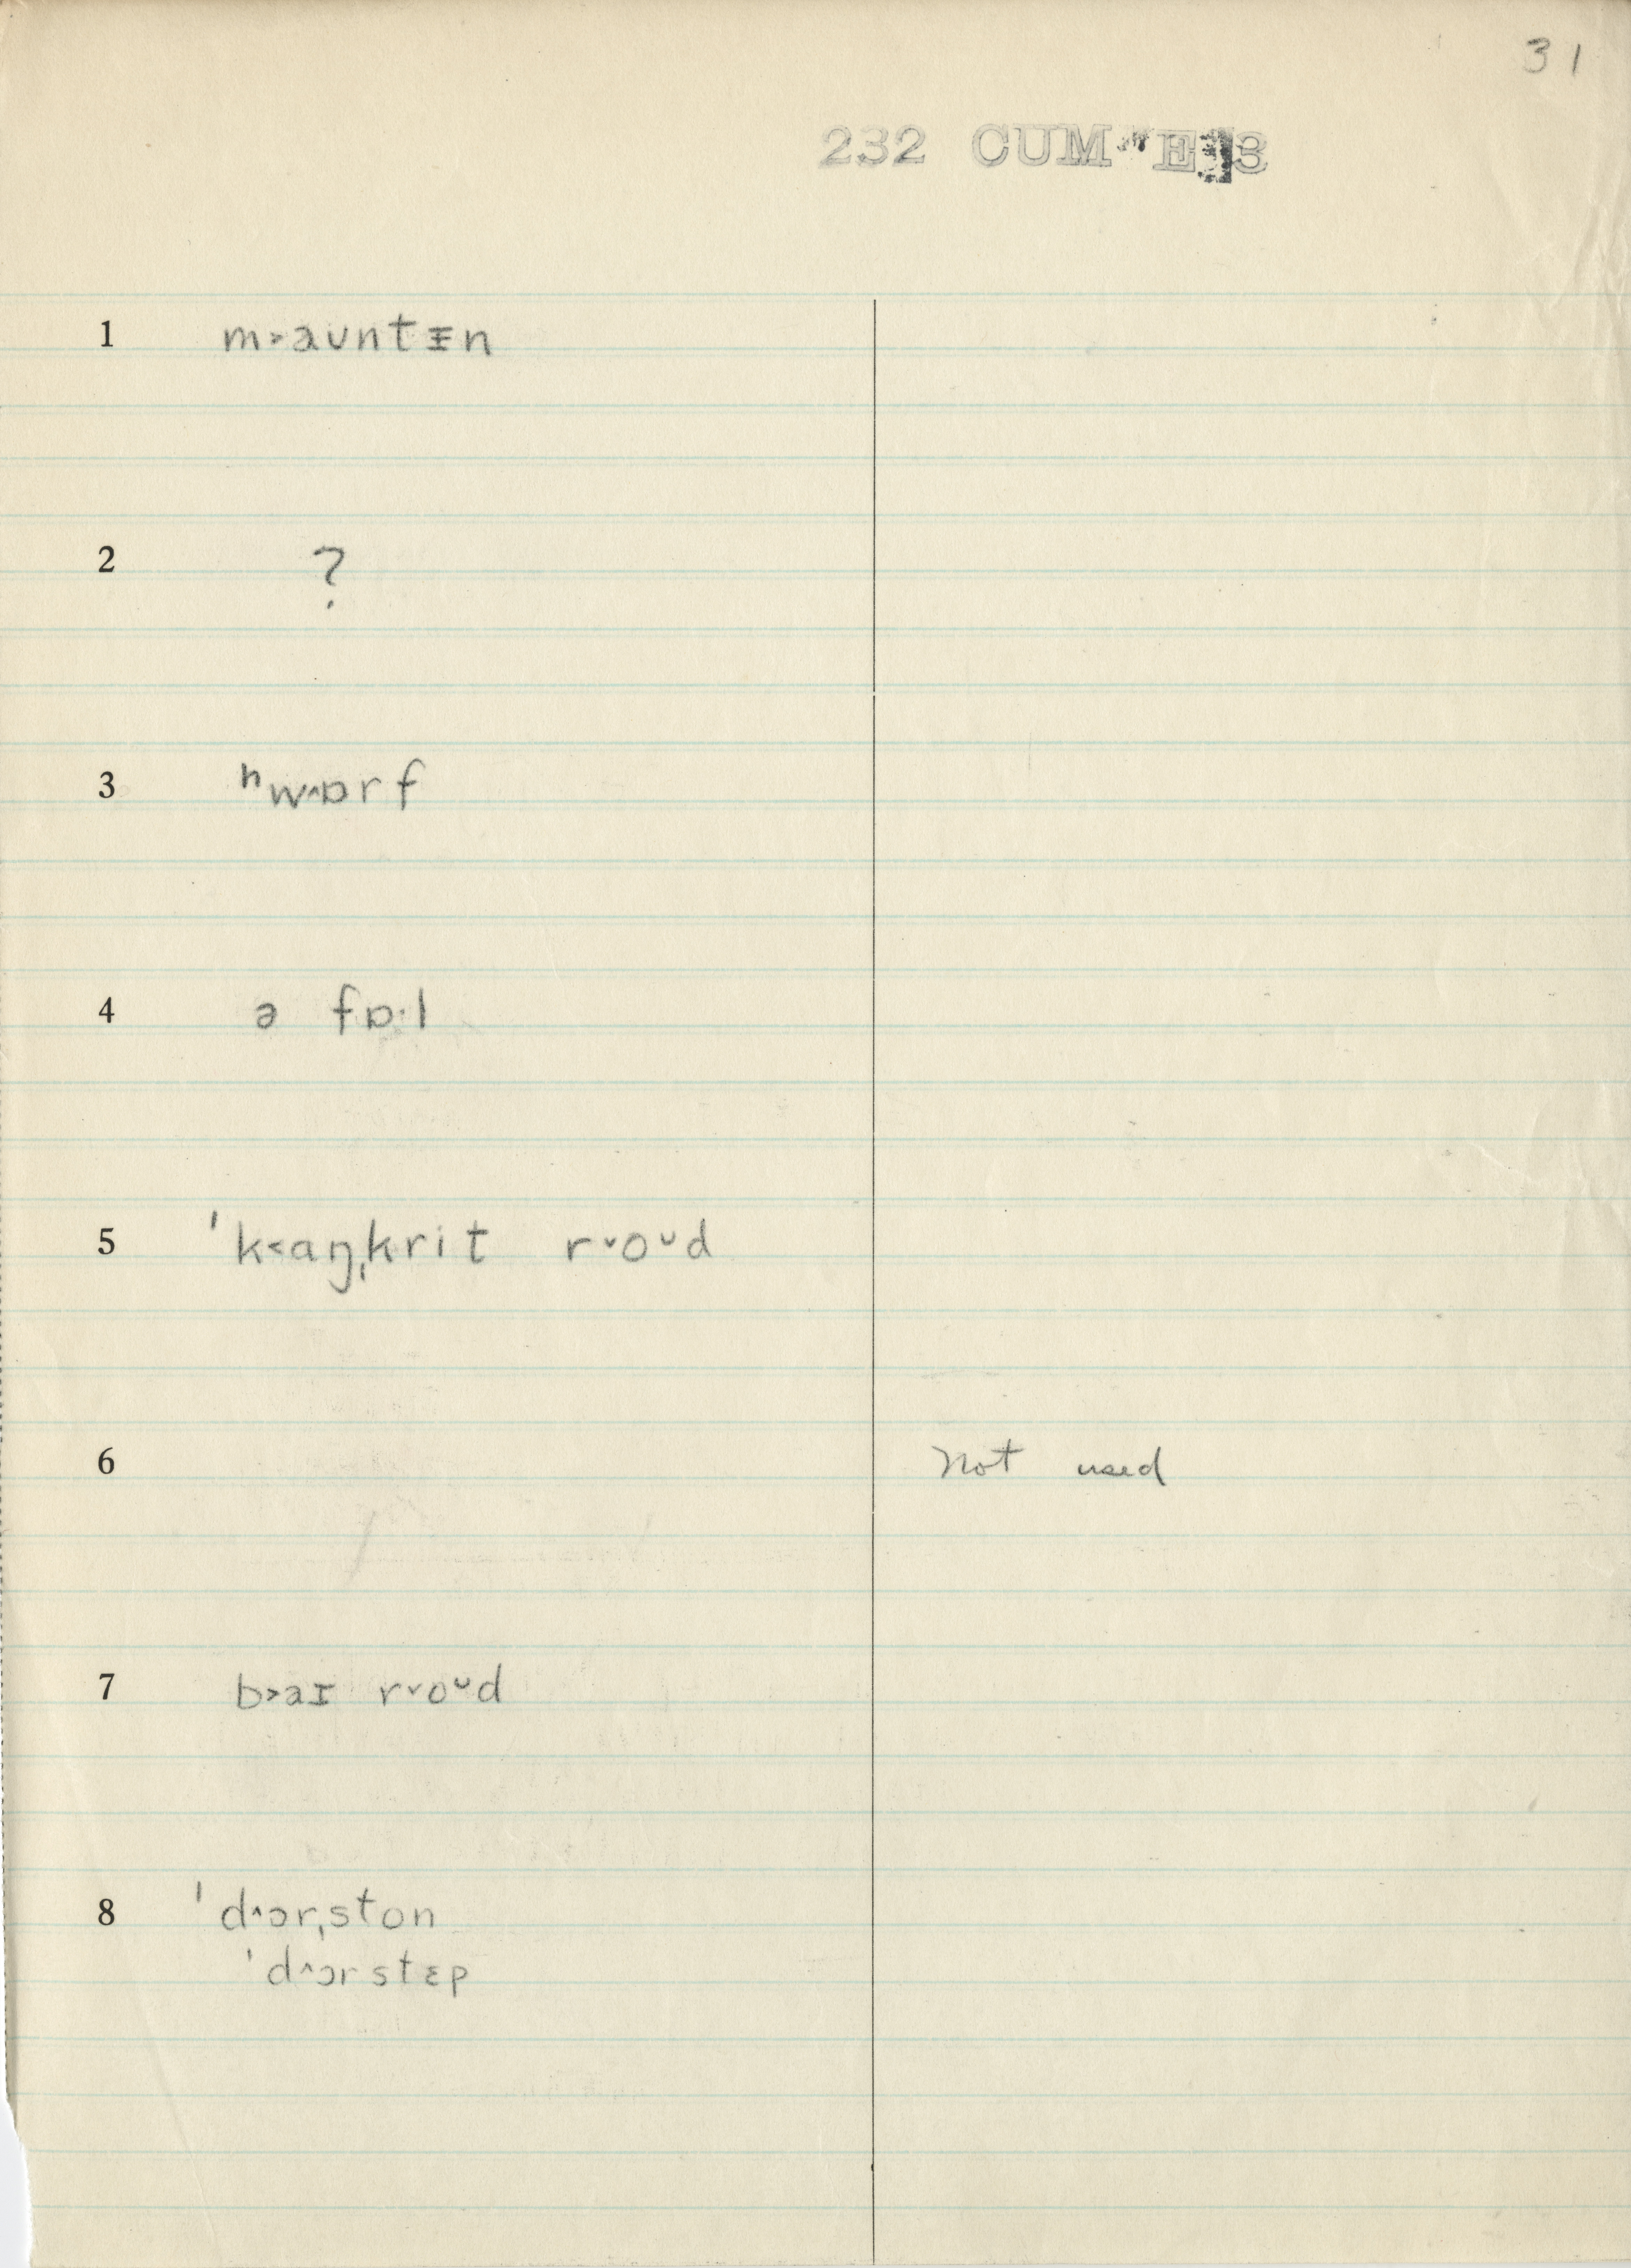 31
232 CUM E 13
1 m˃aʊntᵻn
2 ?
3 ʰw^ɒrf
4 ə fɒ·l
5 ˈk˂aŋˌkrit r˅oᴗd
6 Not used
7 b˃aɪ r˅oᴗd
8 ˈd^ɔrˌston
ˈd^ɔrstɛp